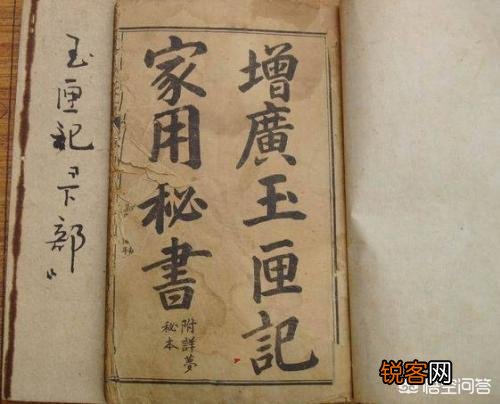 增廣玉匣記
家用秘書
附詳夢
秘本
玉匣記"下部"
锐客网
悟空问答